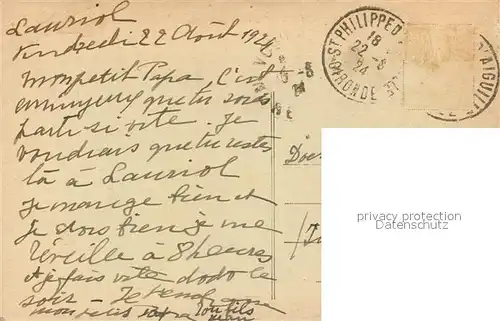 Lauriol
Vendredi 22 Août 1924
Mon petit Papa, C'est
ennuyeux que tu sois
parti si vite. Je
voudrais que tu restes
là à Lauriol
je mange bien et
je dors bien je me
réveille à 8 heures
et je fais vite dodo le
soir - Je t'embrasse
mon petit papa ton fils
Jean
ST PHILIPPE D'AIGUILLE
18
22-8
24
GIRONDE
privacy protection
Datenschutz